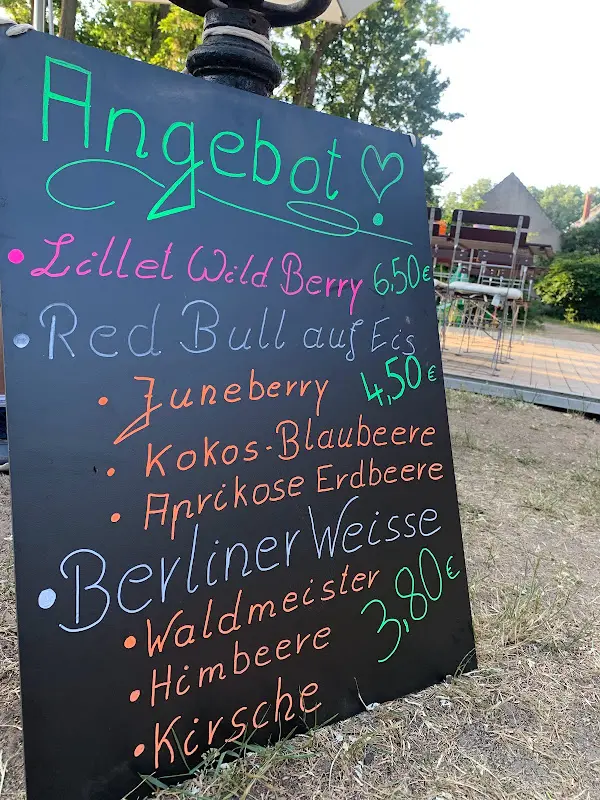 Angebot
• Lillet Wild Berry 6,50 €
• Red Bull auf Eis
• Juneberry 4,50 €
• Kokos-Blaubeere
• Aprikose Erdbeere
• Berliner Weisse
• Waldmeister 3,80 €
• Himbeere
• Kirsche